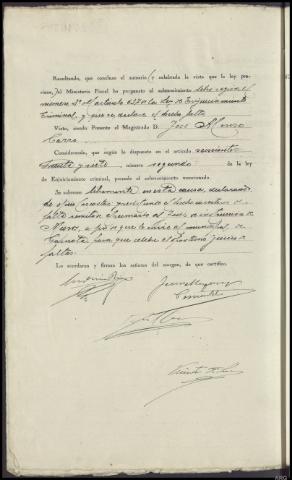 Resultando, que concluso el sumario y celebrada la vista que la ley pre-
viene, el Ministerio Fiscal ha propuesto el sobreseimiento libre según el
número 2º del artículo 637 de la Ley de Enjuiciamiento
Criminal, y que se declare el hecho falta
Visto, siendo Ponente el Magistrado D. José Alonso
Carro
Considerando, que según lo dispuesto en el artículo seiscientos
treinta y siete número segundo de la ley
de Enjuiciamiento criminal, procede el sobreseimiento mencionado.
Se sobresee libremente en esta causa, declarando
de oficio las costas y el hecho
falta remítase el sumario al Juez de instrucción de
Muros, a fin de que lo envíe al municipal de
Carnota, para que celebre el juicio de
faltas.
Lo acordaron y firman los señores del margen, de que certifico.